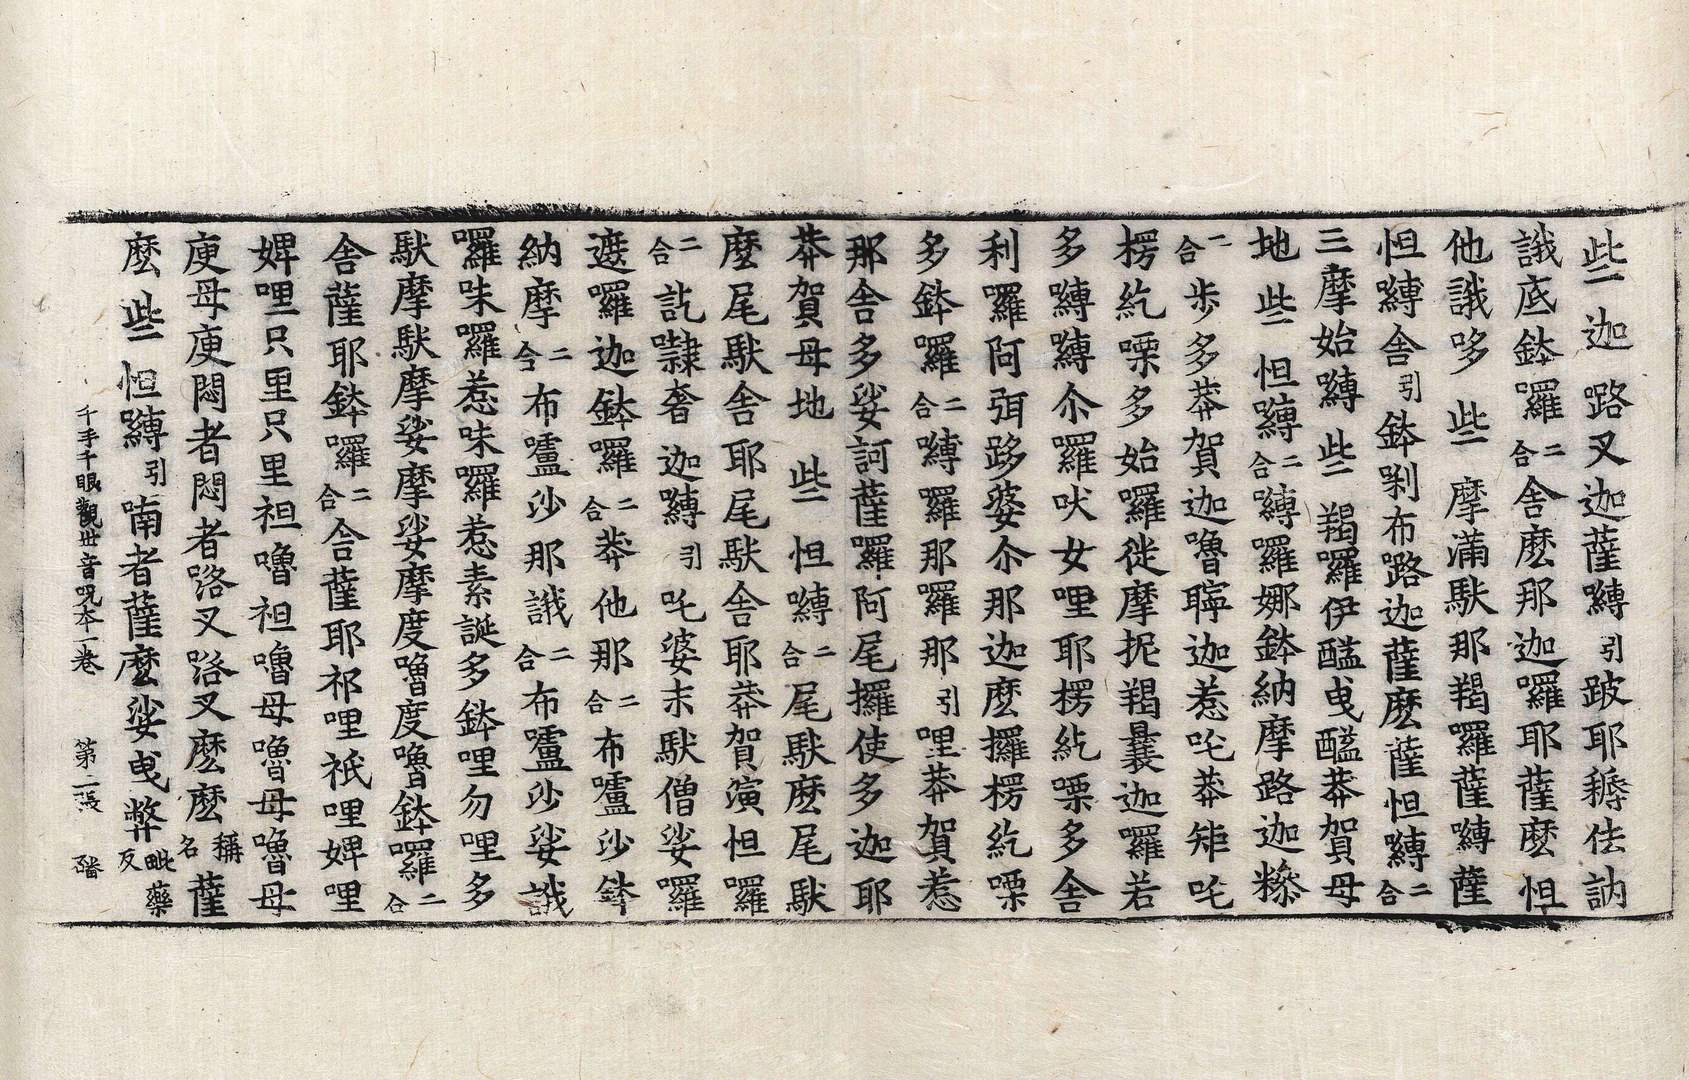 些 迦𡀔叉迦薩嚩引跛耶耨佉訥
誐底鉢囉二合舍麽那迦囉耶薩麽怛
他誐哆 些 摩滿馱那羯囉薩嚩薩
怛嚩舍引鉢唎布路迦薩麽薩怛嚩二合
三摩始嚩 些 羯囉伊醯曳醯莽賀母
地 些 怛嚩二合嚩羅娜鉢納摩路迦糝
二合步多莽賀迦嚕聹迦惹吒莽矩吒
楞紇㗚多始囉徙摩抳羯曩迦囉若
多嚩嚩尒囉吠女哩耶楞紇㗚多舍
利囉阿弭跢婆尒那迦麽攞楞紇㗚
多鉢囉二合嚩囉那囉那引哩莽賀惹
那舍多娑訶薩囉阿尾攞使多迦耶
莽賀母地 些 怛嚩二合尾馱麽尾馱
麽尾馱舍耶尾馱舍耶莽賀演怛囉
二合訖㘑奢迦嚩引吒婆末馱僧娑囉
遮囉迦鉢囉二合莽他那二合布嚧沙鉢
納摩二合布嚧沙那誐二合布嚧沙娑誐
囉味囉惹味囉惹素誕多鉢哩勿哩多
馱摩馱摩娑摩娑摩度嚕度嚕鉢囉二合
舍薩耶鉢囉二合舍薩耶祁哩祇哩婢哩
婢哩只里只里袒嚕袒嚕母嚕母嚕母
庾母庾悶者悶者𡀔叉𡀔叉麽麽稱名薩
麽 些 怛嚩引喃者薩麽娑曳弊毗藥反
千手千眼觀世音呪本一卷 第二張 璠